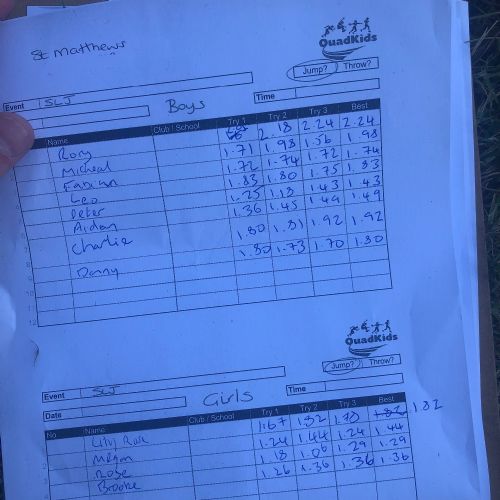 St Matthews
QuadKids
Jump? Throw?
Event SLJ Boys Time
Name Club / School Try 1 Try 2 Try 3 Best
Rory 2.18 2.24 2.24
Micheal 1.71 1.98 1.56 1.98
Fabian 1.72 1.74 1.72 1.74
Leo 1.83 1.80 1.75 1.83
Peter 1.25 1.13 1.43 1.43
Aidan 1.36 1.45 1.49 1.49
Charlie 1.80 1.81 1.92 1.92
Danny 1.80 1.73 1.70 1.80
12
QuadKids
Jump? Throw?
Event SLJ Girls Time
Date
No Name Club / School Try 1 Try 2 Try 3 Best
Lily Rose 1.67 1.82 1.78 1.82 1.82
Megan 1.24 1.44 1.24 1.44
Rose 1.18 1.06 1.29 1.29
Brooke 1.26 1.36 1.36 1.36